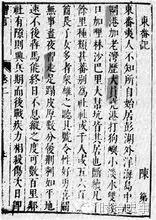 東番記 陳第
東番夷人不知所自始居彭湖外洋海島中起
魍港加老灣歷大員堯港打狗嶼小淡水雙溪
口加哩林沙巴里大幫坑皆其居也斷續凡千
餘里種類甚蕃別為社社或千人或五六百無
酋長子女多者眾雄之聽其號令性好勇喜鬥
無事晝夜習走足蹋皮厚數分履荊刺如平地
速不後犇馬能終日不息縱之度可數百里鄰
社有隙則興兵期而後戰疾力相殺傷次日即